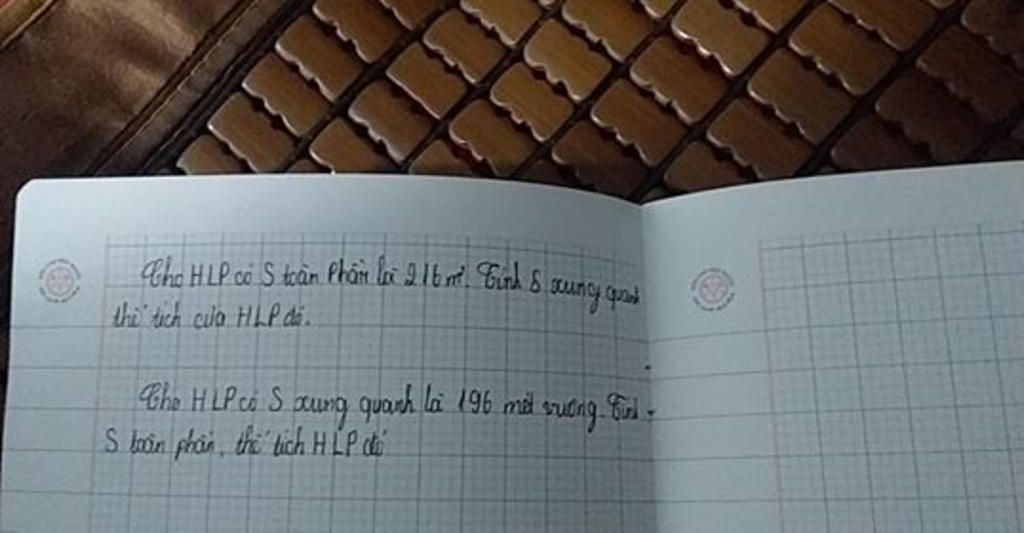 Cho HLP có S toàn Phần là 216 m². Tính S xung quanh
thể tích của HLP đó.
Cho HLP có S xung quanh là 196 mét vuông. Tính
S toàn phần, thể tích HLP đó